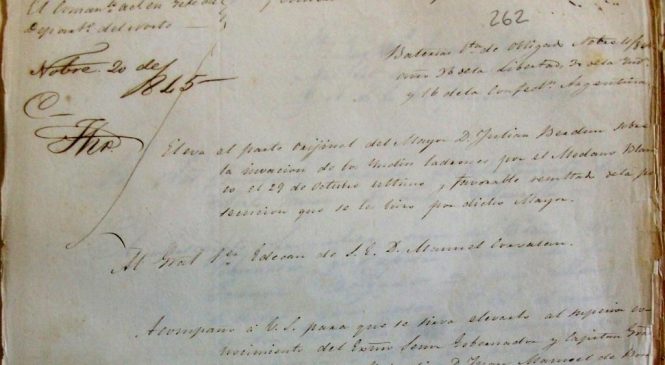 262
El Coman.te acc.l en Gefe del
Depart.o del Norte
Nobre. 20 de
1845
Baterias de Obligado Nobre. 11/845
año 36 de la Libertad, 30 de la Ind.
y 16 de la Confed.n Argentina.
Eleva el parte orijinal del Mayor D. Julian sobre
la invacion de los Yndios ladrones por el Medano Blan
co el 29 de Octubre ultimo y favorable resultado de la per
secucion que se les hizo por dicho Mayor.
Al Gral 1.er Edecan de S.E. D. Manuel Corvalan.
Acompaño á V.S. para que se sirva elevarlo al superior co
nocimiento del Exmo Señor Gobernador y Capitan Gral
D. Juan Manuel de Ros